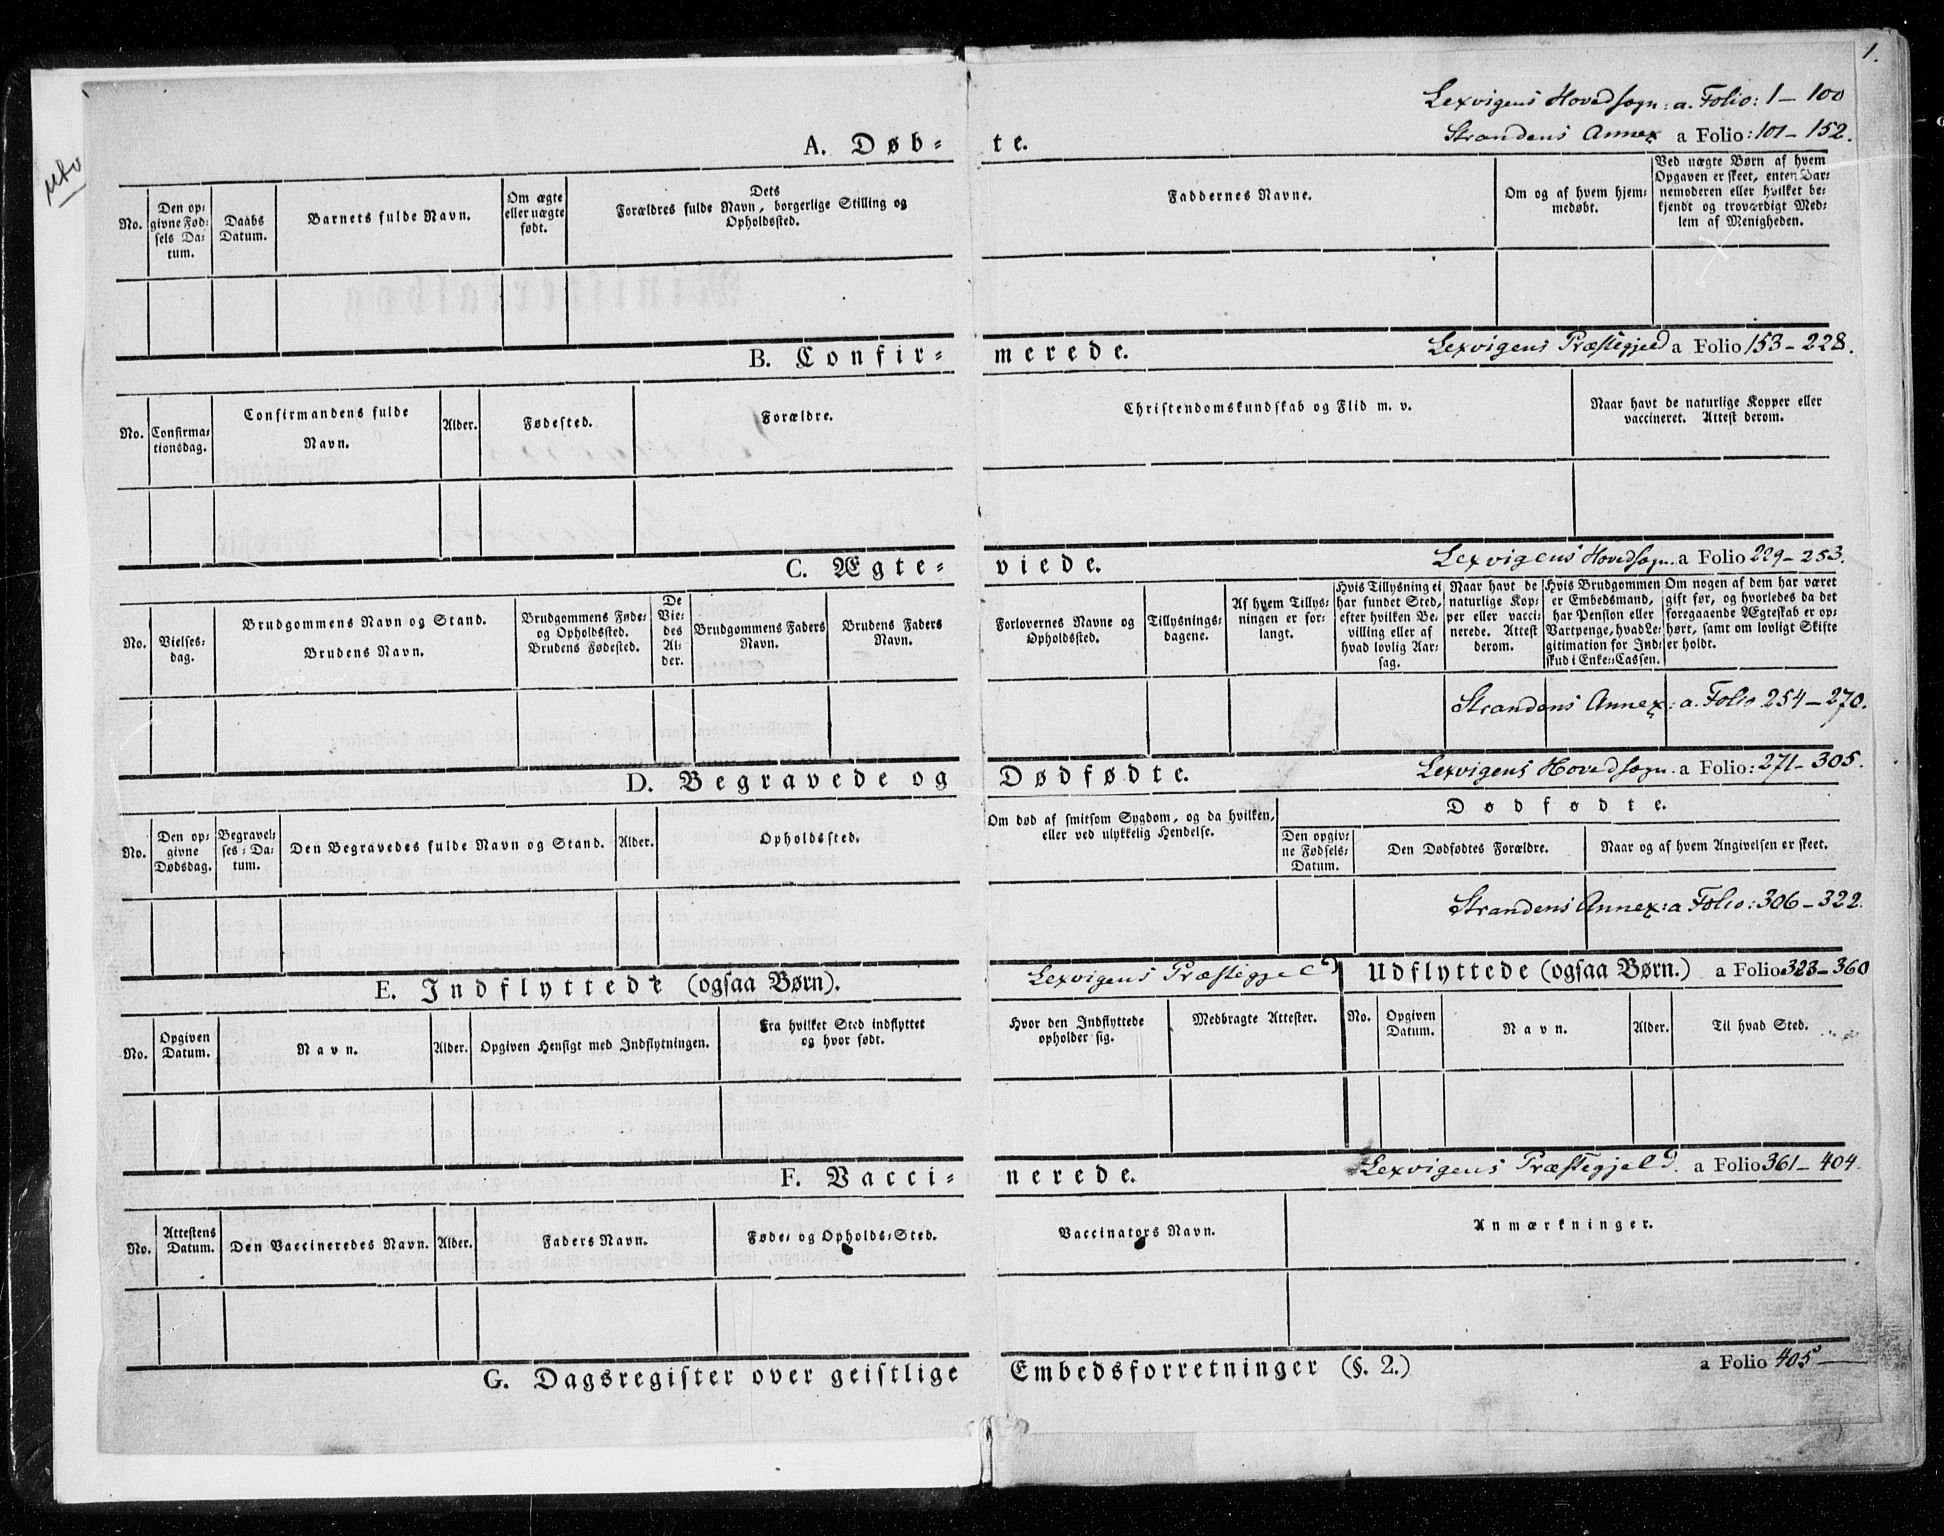 1.
Lexvigens Hovedsogn: a. Folio: 1 – 100
Strandens Annex a Folio: 101 – 152.
A. Døb- te.
No.
Den op-
givne Fød-
sels Da-
tum.
Daabs
Datum.
Barnets fulde Navn.
Om ægte
eller uægte
født.
Dets
Forældres fulde Navn, borgerlige Stilling og
Opholdssted.
Faddernes Navne.
Om og af hvem hjem-
medøbt.
Ved uægte Børn af hvem
Opgaven er skeet, enten Bar-
nemoderen eller hvilket be-
kjendt og troværdigt Med-
lem af Menigheden.
B. Confir- merede.
Lexvigens Præstegjeld a Folio 153 – 228.
No.
Confirma-
tionsdag.
Confirmandens fulde
Navn.
Alder.
Fødested.
Forældre.
Christendomskundskab og Flid m. v.
Naar havt de naturlige Kopper eller
vaccineret. Attest derom.
C. Ægte- viede.
Lexvigens Hovedsogn. a Folio 229 – 253.
No.
Vielses-
dag.
Brudgommens Navn og Stand.
Brudens Navn.
Brudgommens Føde-
og Opholdssted.
Brudens Fødested.
De
Vie-
des
Al-
der.
Brudgommens Faders
Navn.
Brudens Faders
Navn.
Forlovernes Navne og
Opholdssted.
Tillysnings-
dagene.
Af hvem Tillys-
ningen er for-
langt.
Hvis Tillysning ei
har fundet Sted,
efter hvilken Be-
villing eller af
hvad lovlig Aar-
sag.
Naar havt de
naturlige Kop-
per eller vacci-
nerede. Attest
derom.
Hvis Brudgommen
er Embedsmand,
har Pension eller
Vartpenge, hvad Le-
gitimation for Ind-
skud i Enke-Cassen.
Om nogen af dem har været
gift før, og hvorledes da det
foregaaende Ægteskab er op-
hørt, samt om lovligt Skifte
er holdt.
Strandens Annex: a. Folio 254 – 270.
D. Begravede og Dødfødte.
Lexvigens Hovedsogn. a Folio: 271 – 305.
No.
Den op-
givne
Dødsdag.
Begravel-
ses-Da-
tum.
Den Begravedes fulde Navn og Stand.
Alder.
Opholdssted.
Om død af smitsom Sygdom, og da hvilken,
eller ved ulykkelig Hendelse.
Dødfødte.
Den opgiv-
ne Fødsels-
Datum.
Den Dødfødtes Forældre.
Naar og af hvem Angivelsen er skeet.
Strandens Annex: a Folio: 306 – 322.
E. Indflyttede (ogsaa Børn).
Lexvigens Præstegjeld
Udflyttede (ogsaa Børn.) a Folio 323 – 360
No.
Opgiven
Datum.
Navn.
Alder.
Opgiven Hensigt med Indflytningen.
Fra hvilket Sted indflyttet
og hvor født.
Hvor den Indflyttede
opholder sig.
Medbragte Attester.
No.
Opgiven
Datum.
Navn.
Alder.
Til hvad Sted.
F. Vacci- nerede.
Lexvigens Præstegjeld. a Folio 361 – 404.
No.
Attestens
Datum.
Den Vaccineredes Navn.
Alder.
Faders Navn.
Føde- og Opholds-Sted.
Vaccinators Navn.
Anmærkninger.
G. Dagsregister over geistlige Embedsforretninger (§. 2.)
a Folio 405 –